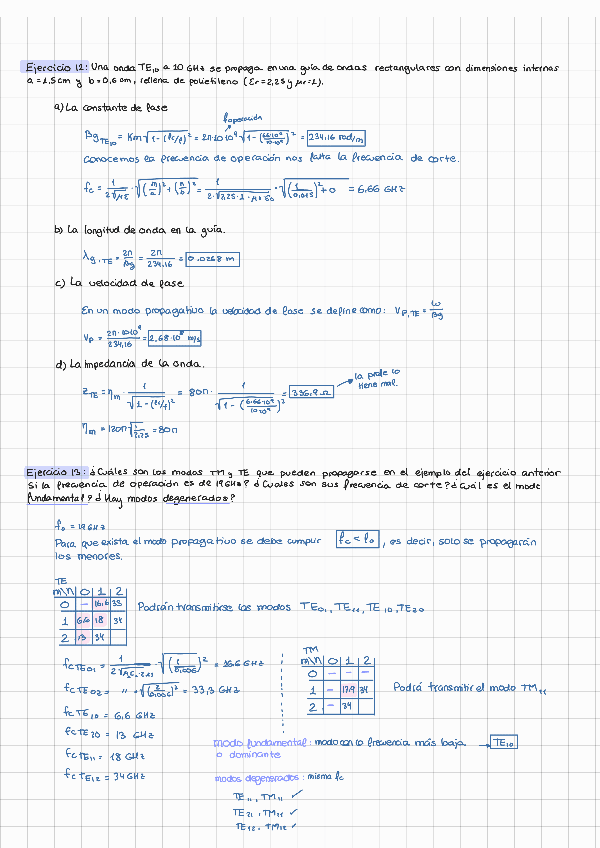 Ejercicio 12: Una onda TE₁₀ a 10 GHz se propaga en una guía de ondas rectangulares con dimensiones internas
a = 1.5cm y b = 0,6 cm, rellena de polietileno (εr = 2,25 y μr = 1).
a) La constante de fase
f operación
βg TE₁₀ = Km √(1-(fc/f)²) = 2π·10·10⁹ √(1-(6,66·10⁹/10·10⁹)²) = 234,16 rad/m
Conocemos la frecuencia de operación nos falta la frecuencia de corte.
fc = 1/(2√με) · √((m/a)² + (n/b)²) = 1/(2·√2,25·1·μ0·ε0) · √((1/0,015)² + 0) = 6,66 GHz
b) La longitud de onda en la guía.
λg,TE = 2π/βg = 2π/234,16 = 0,0268 m
c) La velocidad de fase
En un modo propagativo la velocidad de fase se define como: Vp,TE = ω/βg
Vp = 2π·10·10⁹/234,16 = 2,68·10⁸ m/s
d) La impedancia de la onda.
la profe lo
tiene mal.
ZTE = ηm · 1/√(1-(fc/f)²) = 80π · 1/√(1-(6,66·10⁹/10·10⁹)²) = 336,9 Ω
ηm = 120π √(1/2,25) = 80π
Ejercicio 13: ¿Cuáles son los modos TM y TE que pueden propagarse en el ejemplo del ejercicio anterior
si la frecuencia de operación es de 19GHz? ¿Cuáles son sus frecuencia de corte? ¿Cuál es el modo
fundamental? ¿Hay modos degenerados?
f₀ = 19 GHz
Para que exista el modo propagativo se debe cumplir fc < f₀, es decir, solo se propagarán
los menores.
TE
m\n 0 1 2
0 – 16,6 33
1 6,6 18 34
2 13 34
Podrán transmitirse los modos TE₀₁, TE₁₁, TE₁₀, TE₂₀
fc TE₀₁ = · √((1/0,006)²) = 16.6 GHz
fc TE₀₂ = " · √((2/0,006)²) = 33,3 GHz
fc TE₁₀ = 6,6 GHz
fc TE₂₀ = 13 GHz
fc TE₁₁ = 18 GHz
fc TE₁₂ = 34 GHz
TM
m\n 0 1 2
0 – – –
1 – 17,9 34
2 – 34
Podrá transmitir el modo TM₁₁
modo fundamental: modo con la frecuencia más baja. → TE₁₀
o dominante
modos degenerados: misma fc
TE₁₁, TM₁₁ ✓
TE₂₁, TM₂₁ ✓
TE₁₂, TM₁₂ ✓